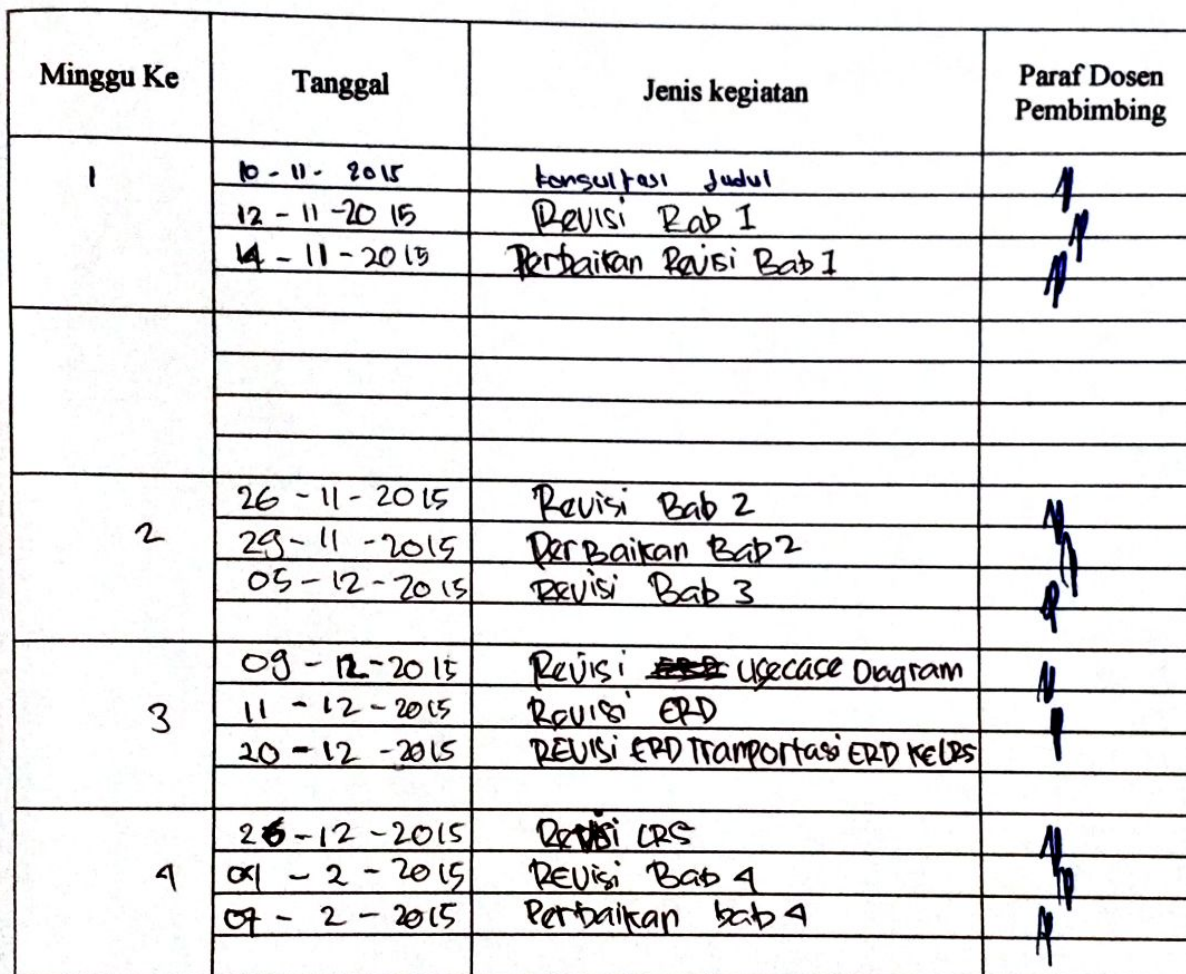 Minggu Ke Tanggal Jenis kegiatan Paraf Dosen Pembimbing
1 10 - 11 - 2015 Konsultasi Judul
12 - 11 - 2015 Revisi Bab I
14 - 11 - 2015 Perbaikan Revisi Bab I
2 26 - 11 - 2015 Revisi Bab 2
29 - 11 - 2015 PerBaikan Bab 2
05 - 12 - 2015 Revisi Bab 3
3 09 - 12 - 2015 Revisi Usecase Diagram
11 - 12 - 2015 Revisi ERD
20 - 12 - 2015 REVISi ERD Tranportasi ERD KELRS
4 26 - 12 - 2015 Revisi LRS
- 2 - 2015 REVisi Bab 4
07 - 2 - 2015 Perbaikan bab 4